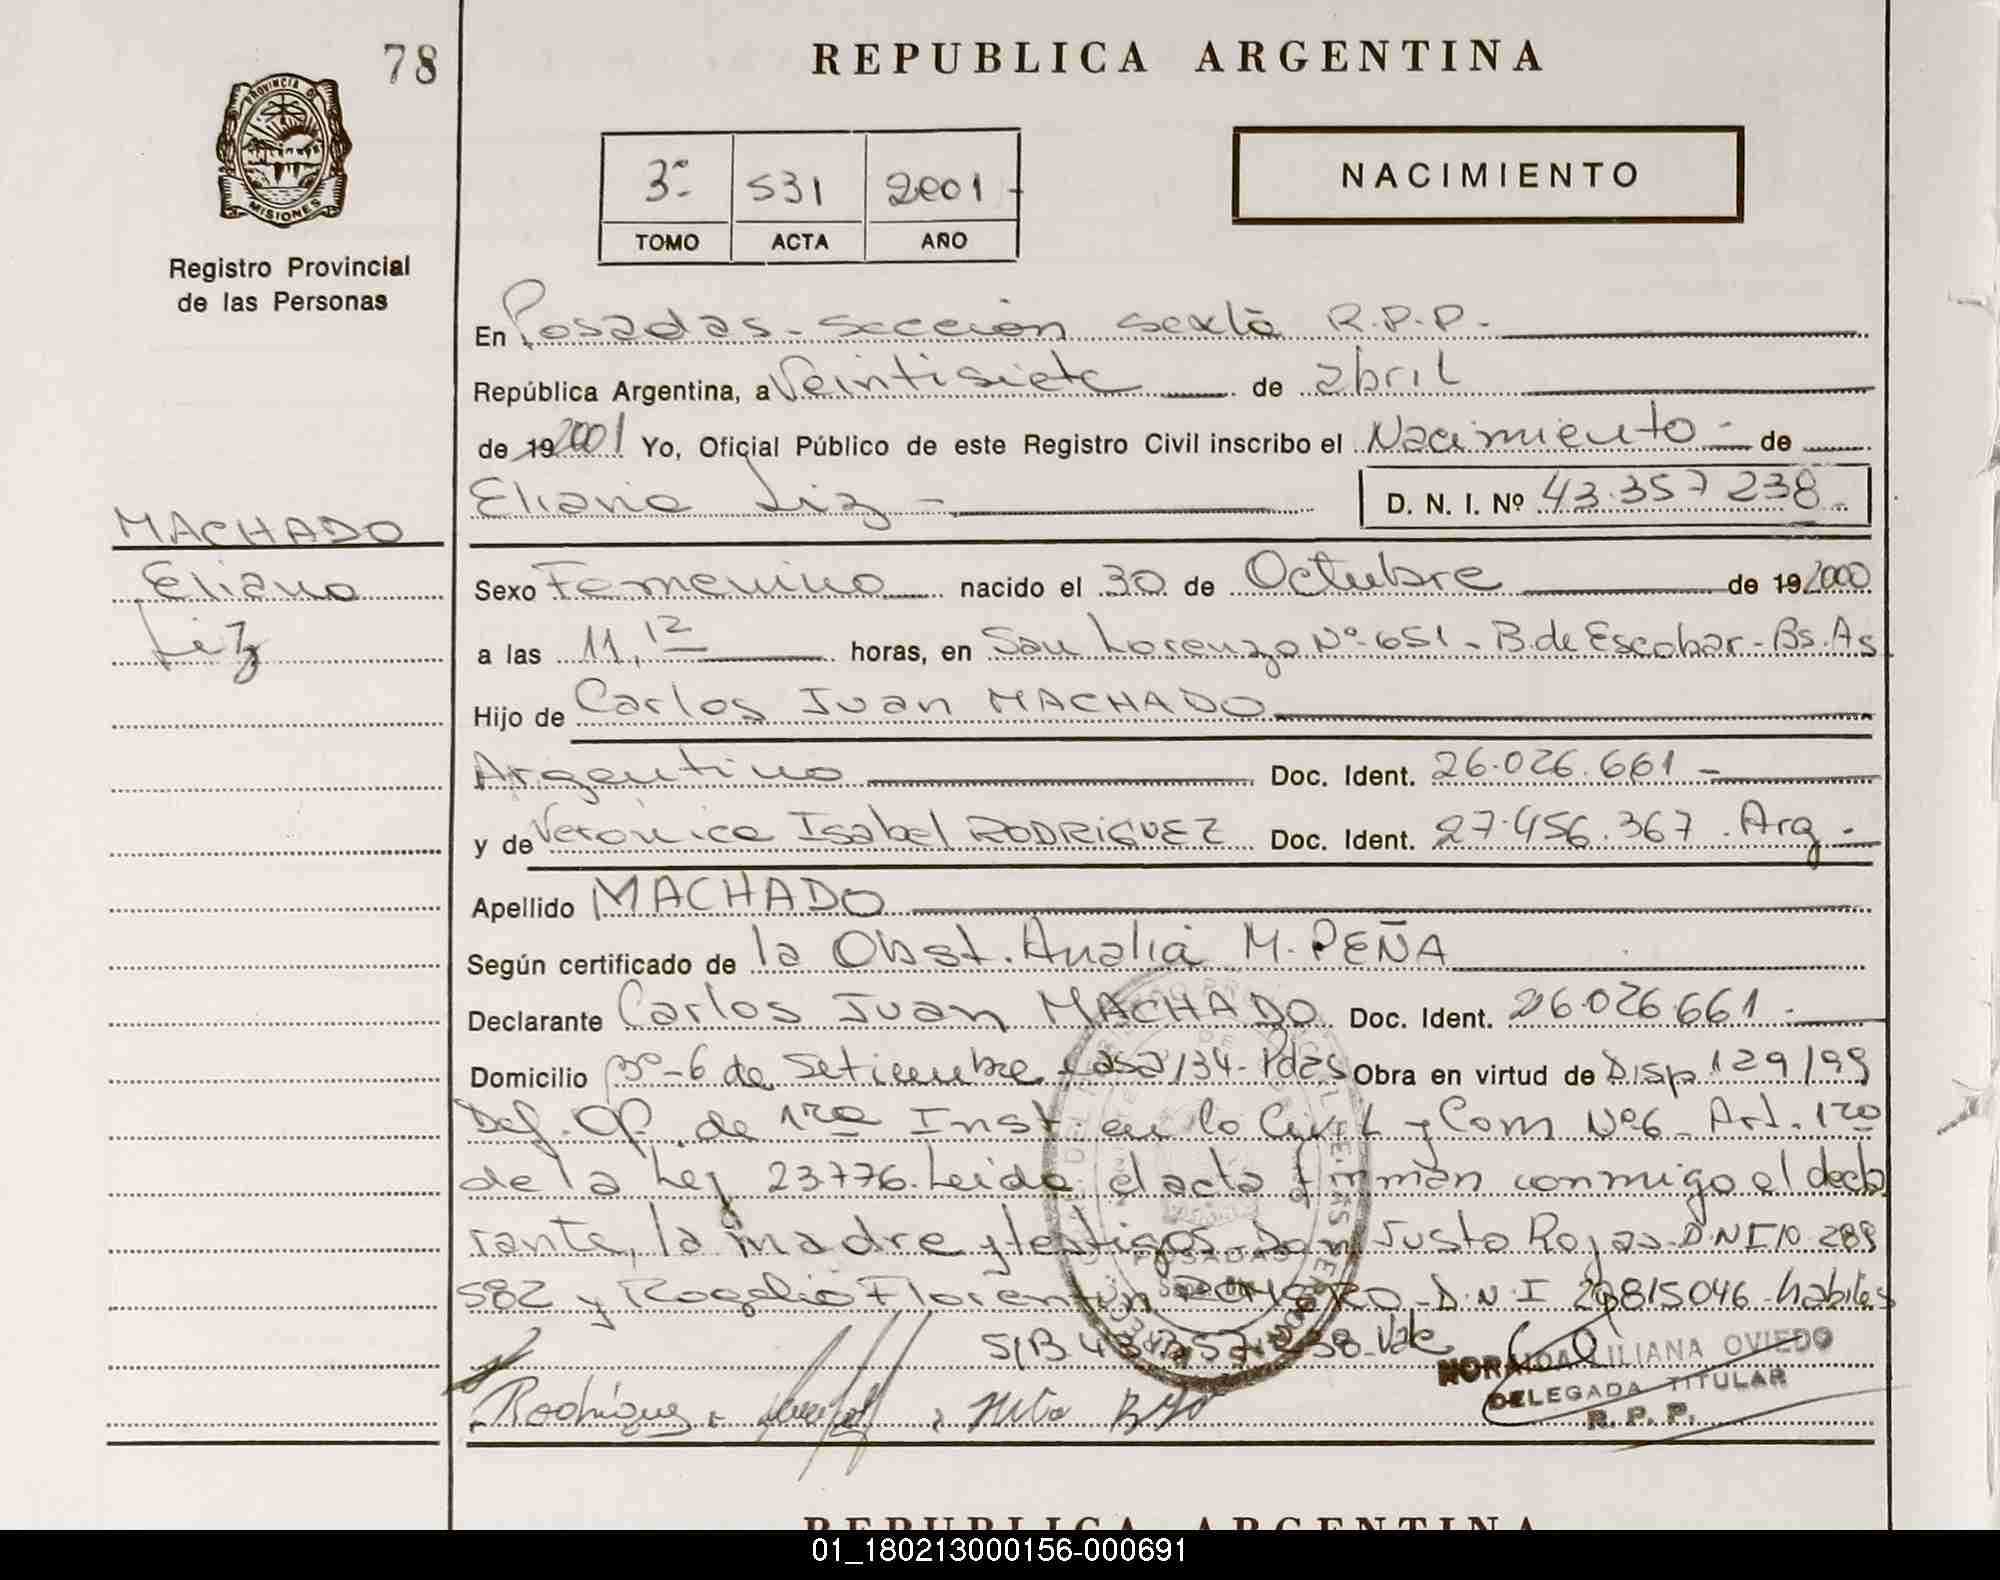 78
REPUBLICA ARGENTINA
PROVINCIA DE
MISIONES
Registro Provincial
de las Personas
3º 531 2001
TOMO ACTA AÑO
NACIMIENTO
En Posadas - Sección sexta R.P.P.
República Argentina, a Veintisiete de abril
de 192001 Yo, Oficial Público de este Registro Civil inscribo el Nacimiento - de
Eliana Liz - D. N. I. Nº 43.357 238
MACHADO
Eliana
Liz
Sexo Femenino nacido el 30 de Octubre de 19 2000
a las 11,12 horas, en San Lorenzo Nº 651 - B. de Escobar - Bs. As
Hijo de Carlos Juan MACHADO
Argentino Doc. Ident. 26.026.661 -
y de Verónica Isabel RODRIGUEZ Doc. Ident. 27.456.367. Arg -
Apellido MACHADO
Según certificado de la Obst. Analia M. PEÑA
Declarante Carlos Juan MACHADO Doc. Ident. 26.026.661 -
Domicilio Bº - 6 de Setiembre casa 134 - Pdas Obra en virtud de Disp 129/99
Def. Of. de 1ra Inst. en lo Civil y Com Nº 6 - Art. 1ro
de la Ley 23776. Leida el acta firman conmigo el decla
rante, la madre y testigos Don Justo Rojas D.N.I 10.289
582 y Rogelio Florentin ROMERO - D.N.I 29815046 - habiles
S/B 43.357.238 - Vale
Rodriguez
NORAIDA LILIANA OVIEDO
DELEGADA TITULAR
R. P. P.
REPUBLICA ARGENTINA
01_180213000156-000691